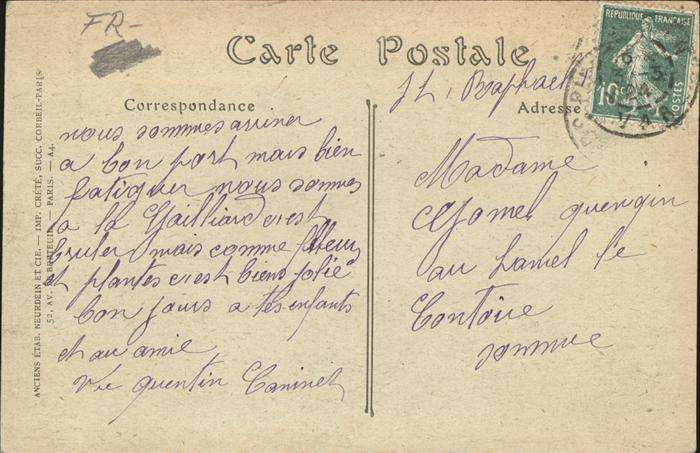 FR-
Carte Postale
St. Raphael
Correspondance
Adresse
nous sommes arriver
a bon port mais bien
fatiguer nous sommes
a la Gailliard c'est
bruler mais comme fleur
et plantes c'est biens jolie
bon jours a tes enfants
et au amie
Ve quentin Caninet
Madame
Jomel quengin
au hamel le
Contoire
somme
RÉPUBLIQUE FRANÇAISE
10c
POSTES
VAR
ANCIENS ÉTAB. NEURDEIN ET CIE. — IMP. CRÉTÉ, SUCC. CORBEIL-PARIS
52, AV. BRETEUIL — PARIS. — A4.